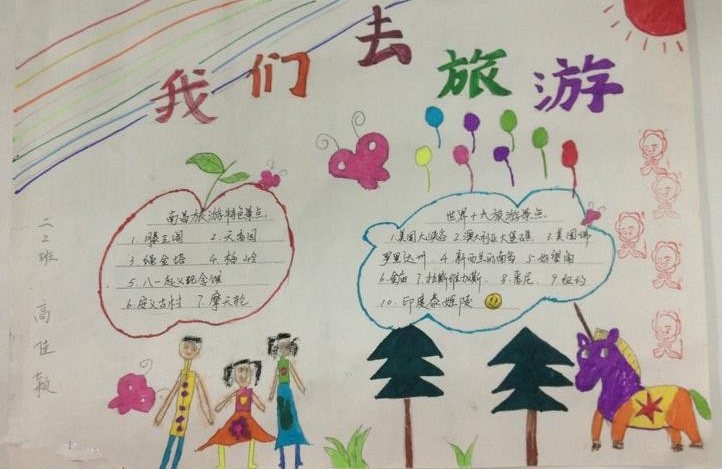 我们去旅游
南昌旅游特色景点
1. 滕王阁 2. 天香园
3 绳金塔 4. 梅岭
5. 八一起义纪念馆
6. 安义古村 7. 摩天轮
世界十大旅游景点
1. 美国大峡谷 2. 澳大利亚大堡礁 3. 美国佛
罗里达州 4. 新西兰的南岛 5. 好望角
6. 金庙 7. 拉斯维加斯 8. 悉尼 9. 纽约
10. 印度泰姬陵
二2班 高佳颖